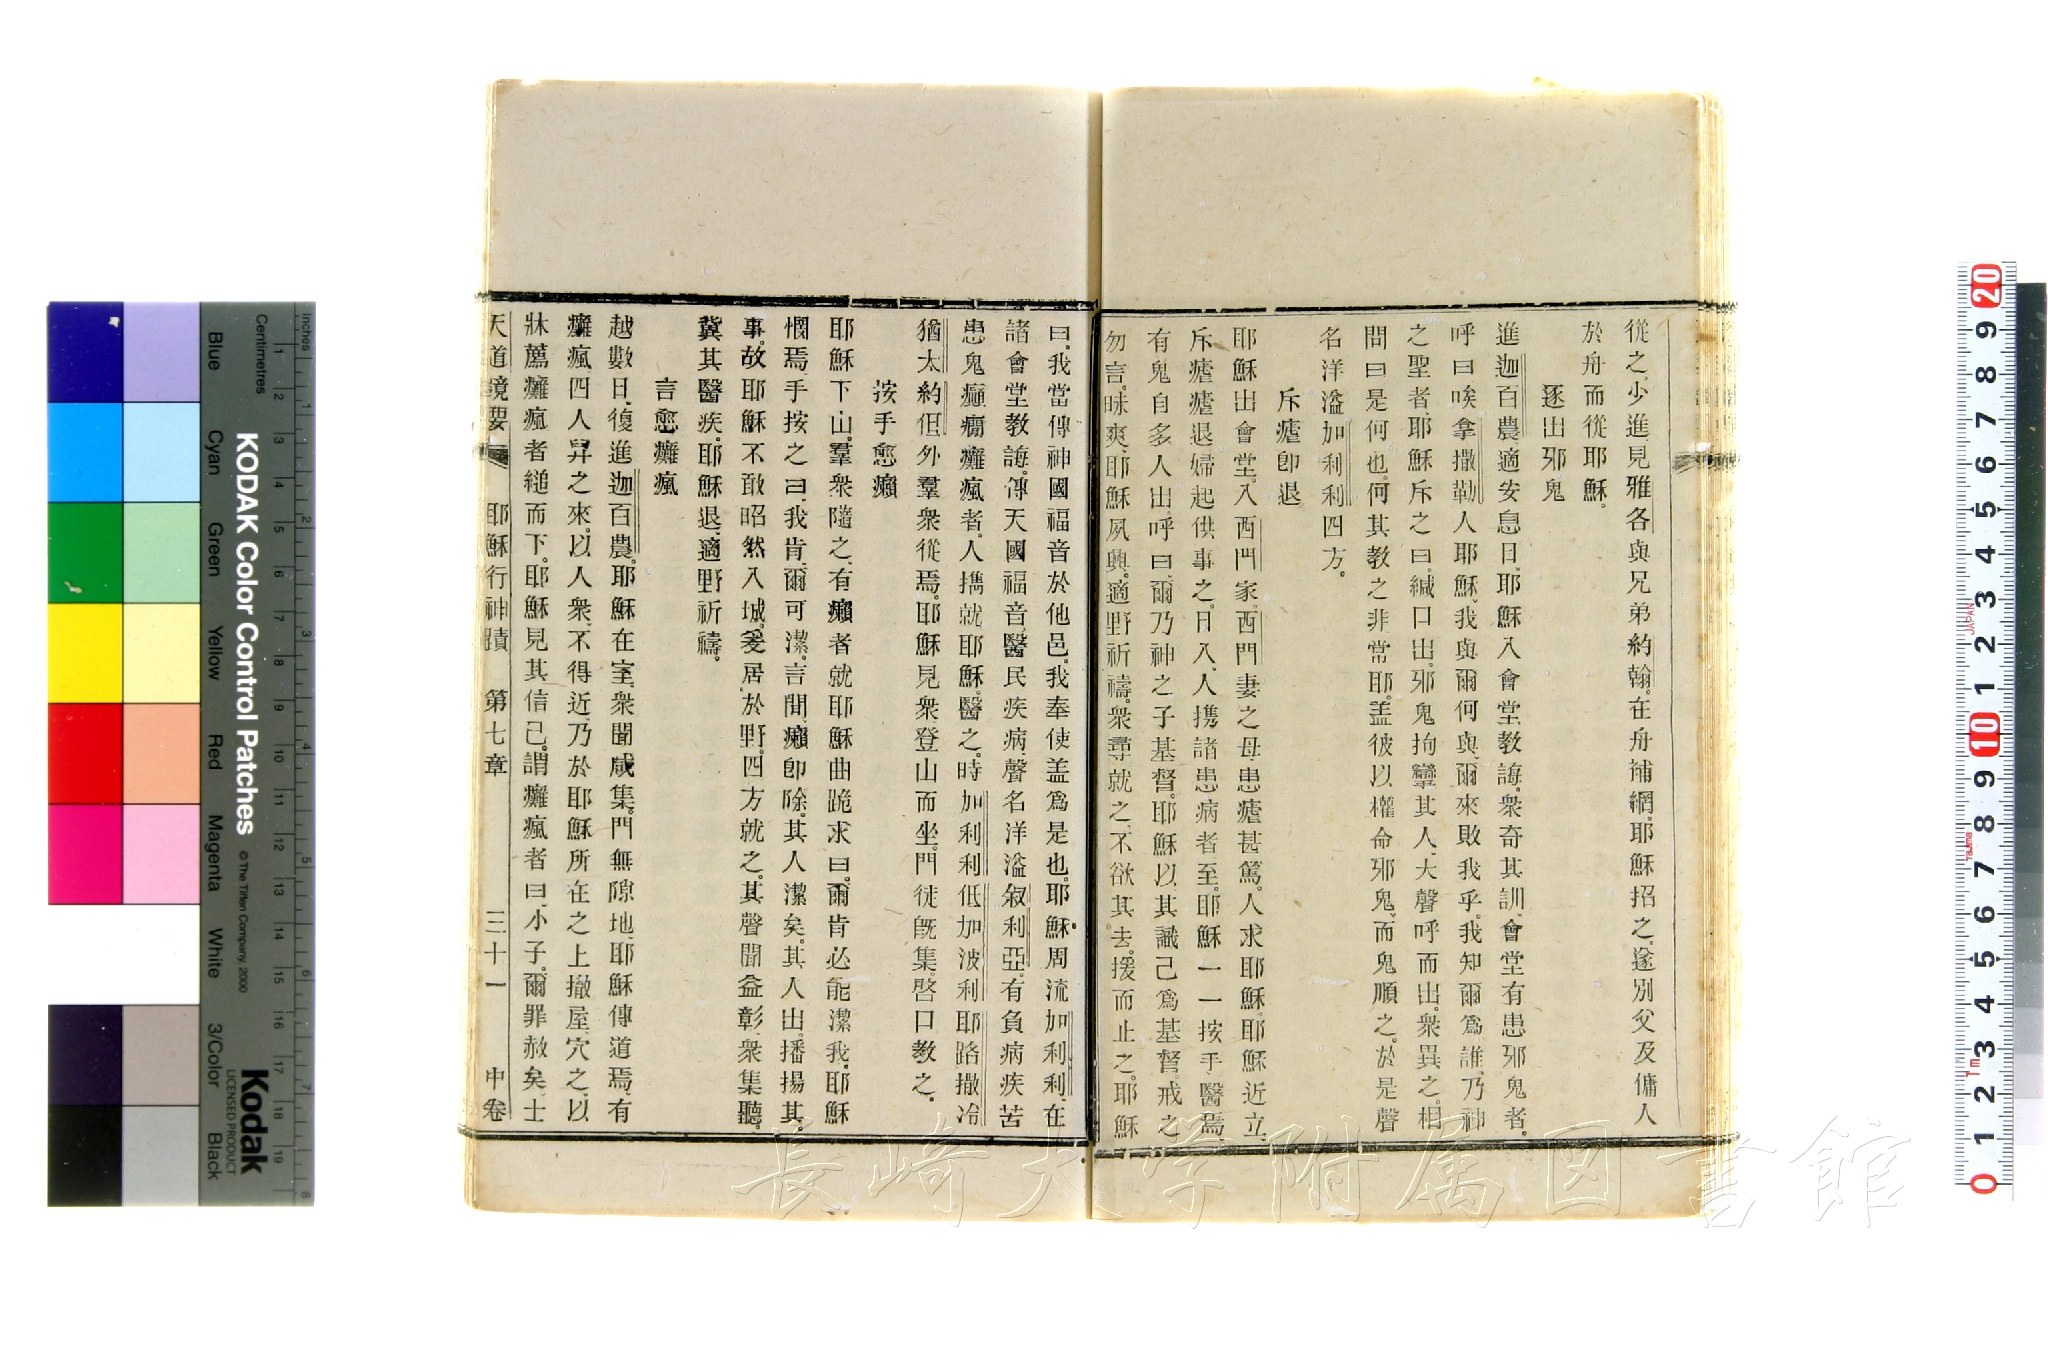 從之、少進、見雅各與兄弟約翰、在舟補網、耶穌招之、遂別父及傭人
於舟而從耶穌。
逐出邪鬼
進迦百農、適安息日、耶穌入會堂教誨、衆奇其訓、會堂有患邪鬼者、
呼曰唉拿撒勒人耶穌、我與爾何與、爾來敗我乎、我知爾爲誰、乃神
之聖者、耶穌斥之曰、緘口出、邪鬼拘攣其人、大聲呼而出、衆異之、相
問曰是何也、何其教之非常耶、盖彼以權命邪鬼、而鬼順之、於是聲
名洋溢加利利四方。
斥瘧卽退
耶穌出會堂、入西門家、西門妻之母患瘧甚篤、人求耶穌、耶穌近立、
斥瘧、瘧退、婦起供事之、日入、人携諸患病者至、耶穌一一按手醫焉、
有鬼自多人出、呼曰、爾乃神之子基督、耶穌以其識己爲基督、戒之
勿言、昧爽、耶穌夙興、適野祈禱、衆尋就之、不欲其去、援而止之、耶穌
曰、我當傳神國福音於他邑、我奉使盖爲是也、耶穌周流加利利、在
諸會堂教誨、傳天國福音、醫民疾病、聲名洋溢叙利亞、有負病疾苦
患鬼癲癇癱瘋者、人攜就耶穌、醫之、時加利利低加波利耶路撒冷
猶太約但外羣衆從焉、耶穌見衆、登山而坐、門徒旣集、啓口教之。
按手愈癩
耶穌下山、羣衆隨之、有癩者就耶穌曲跪求曰、爾肯必能潔我、耶穌
憫焉、手按之曰、我肯、爾可潔、言間、癩卽除、其人潔矣、其人出、播揚其
事、故耶穌不敢昭然入城、爰居於野、四方就之、其聲聞益彰、衆集聽、
冀其醫疾、耶穌退、適野祈禱。
言愈癱瘋
越數日、復進迦百農、耶穌在室、衆聞咸集、門無隙地、耶穌傳道焉、有
癱瘋四人舁之來、以人衆、不得近、乃於耶穌所在之上撤屋、穴之、以
牀薦癱瘋者縋而下、耶穌見其信己、謂癱瘋者曰、小子、爾罪赦矣、士
天道鏡要 耶穌行神蹟 第七章 三十一 中卷
KODAK Color Control Patches
© The Tiffen Company, 2000
Kodak
LICENSED PRODUCT
Inches
Centimetres
Blue
Cyan
Green
Yellow
Red
Magenta
White
3/Color
Black
長崎大学附属図書館
JAPAN